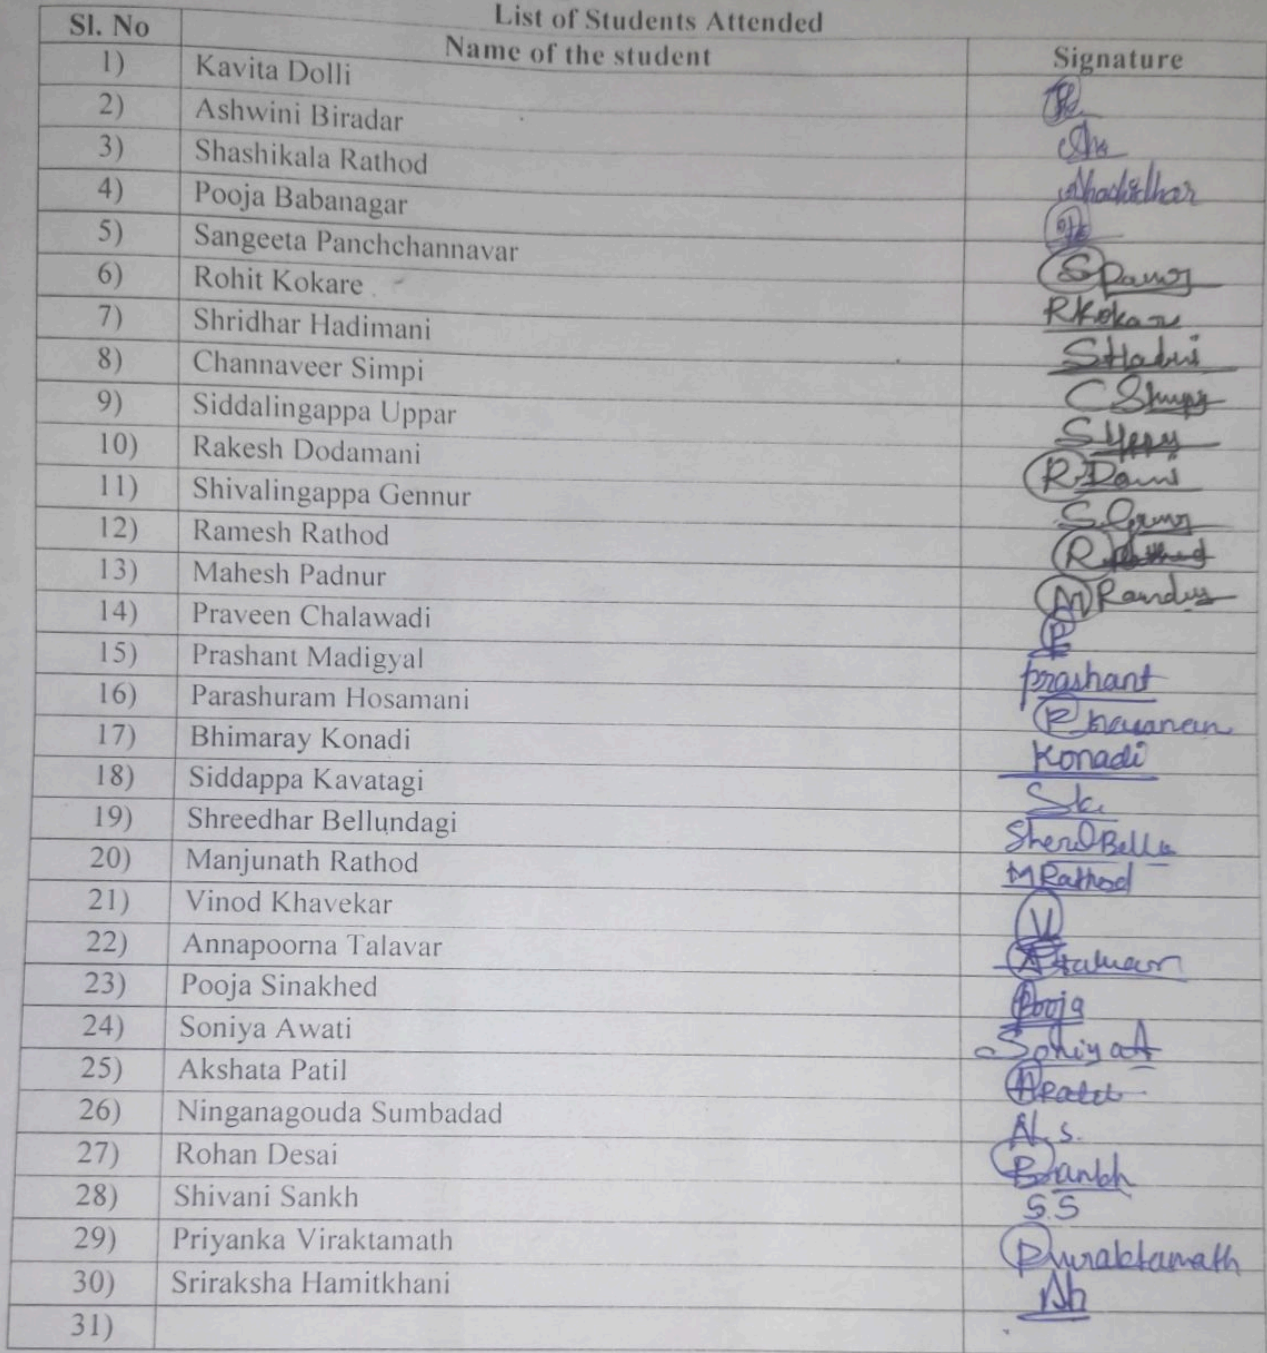 List of Students Attended
Sl. No Name of the student Signature
1) Kavita Dolli
2) Ashwini Biradar
3) Shashikala Rathod
4) Pooja Babanagar
5) Sangeeta Panchchannavar
6) Rohit Kokare
7) Shridhar Hadimani
8) Channaveer Simpi
9) Siddalingappa Uppar
10) Rakesh Dodamani
11) Shivalingappa Gennur
12) Ramesh Rathod
13) Mahesh Padnur
14) Praveen Chalawadi P
15) Prashant Madigyal prashant
16) Parashuram Hosamani
17) Bhimaray Konadi Konadi
18) Siddappa Kavatagi Sk.
19) Shreedhar Bellundagi
20) Manjunath Rathod M Rathod
21) Vinod Khavekar V
22) Annapoorna Talavar
23) Pooja Sinakhed Pooja
24) Soniya Awati Soniya A
25) Akshata Patil
26) Ninganagouda Sumbadad N. s.
27) Rohan Desai
28) Shivani Sankh S.S
29) Priyanka Viraktamath Pviraktamath
30) Sriraksha Hamitkhani
31)